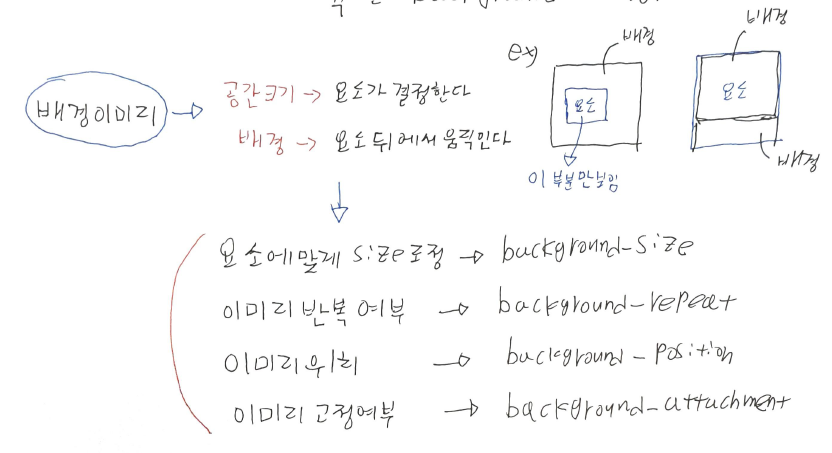 배경
배경
ex)
요소
요소
배경이미지
공간크기 → 요소가 결정한다
배경 → 요소 뒤에서 움직인다
이 부분만 보임
배경
요소에 맞게 size조정 → background-size
이미지 반복 여부 → background-repeat
이미지 위치 → background-position
이미지 고정여부 → background-attachment